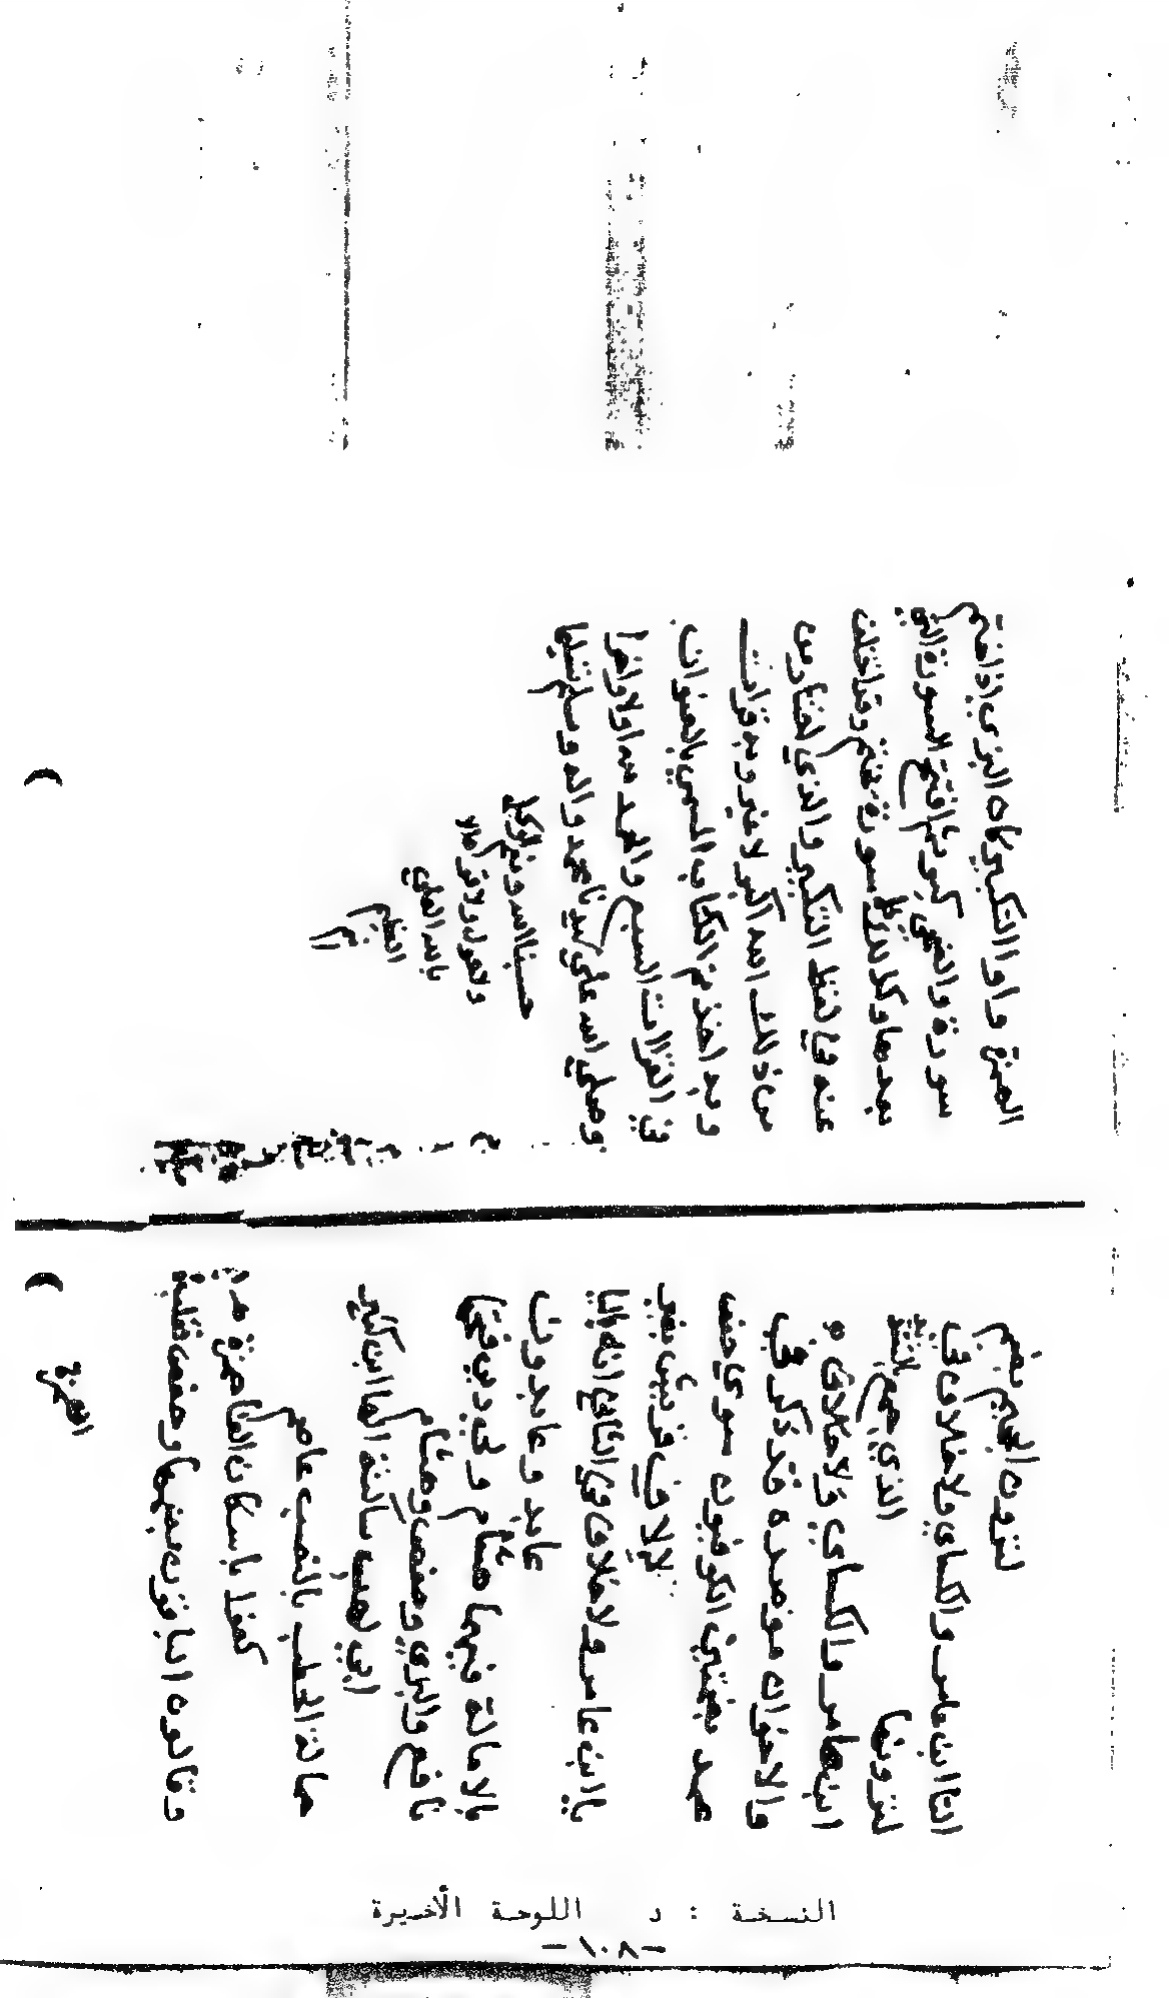 لترون الجحيم بضم
التا ابن عامر والكساي ولا خلاف في
لترونها الذي جمع
ابن عامر والكساي ولا خلاف و
والاخوان موصدة قد ذكر في
عمد بضمتين الكوفيون سوى حفص
لإلاف قريش بغير
يا ابن عامر ولا خلاف في الثاني انه باليا
عابد وعابدون
بالامالة فيهما هشام ولي دين فتحها
نافع والبزي وحفص وهشام
ابي لهب ساكنة الها ابن كثير
حمالة الحطب بالنصب عاصم
كفوا باسكان الفا حمزة
وقالون الباقون بضمها وحفص بقلب
الهمزة
الهمزة واوا التكبير كان البزي اذا ختم
سورة والضحى كبر ثم افتتح السورة التي
بعدها وكذلك سورة يختم وقد اختلف
عنه في لفظ التكبير والذي نختار من
من ذلك الله اكبر لا غير وبه قرات
وبه اخذ تم الكتاب المسمي بالعنوان
في القراات السبع والحمد لله اولا واخرا
وصلي الله علي سيدنا محمد واله وسلم تسليما
حسبنا الله ونعم الوكيل
ولا حول ولا قوة الا
بالله العلي
العظيم
تم
النسخة : د اللوحة الأخيرة
-١٠٨-